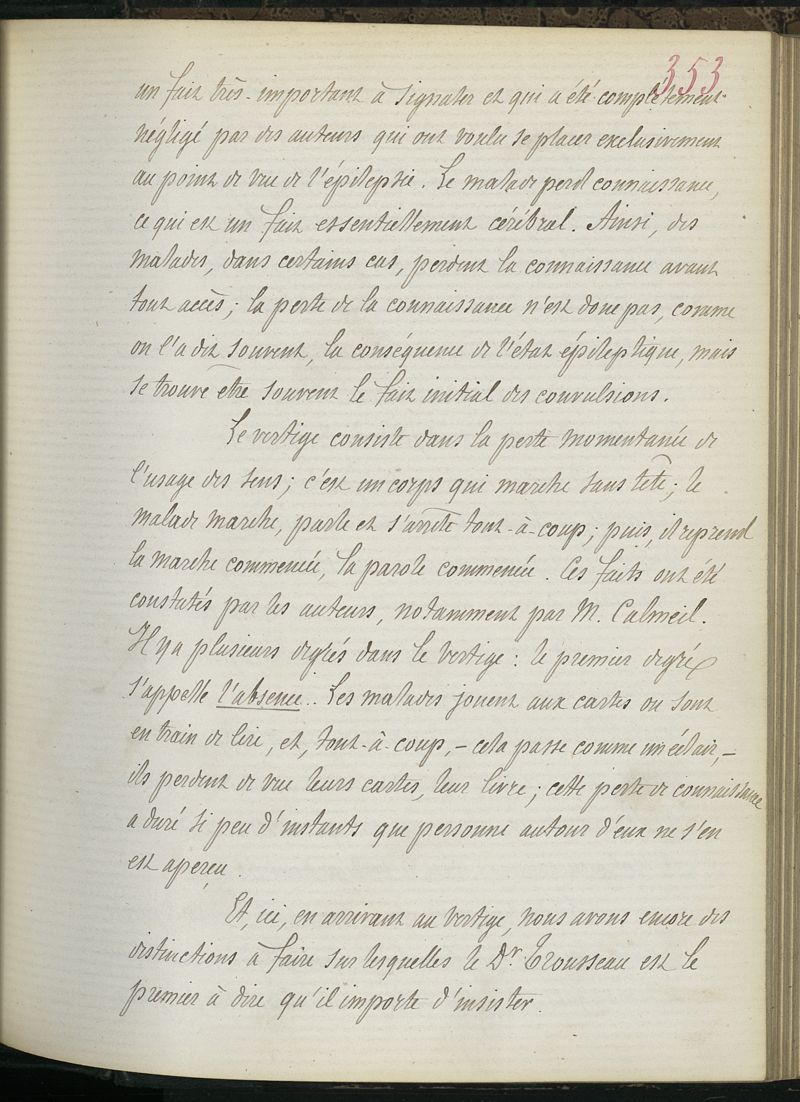 353
un fait très-important à signaler et qui a été complètement
négligé par des auteurs qui ont voulu se placer exclusivement
au point de vue de l'épilepsie. Le malade perd connaissance,
ce qui est un fait essentiellement cérébral. Ainsi, des
malades, dans certains cas, perdent la connaissance avant
tout accès; la perte de la connaissance n'est donc pas, comme
on l'a dit souvent, la conséquence de l'état épileptique, mais
se trouve être souvent le fait initial des convulsions.
Le vertige consiste dans la perte momentanée de
l'usage des sens; c'est un corps qui marche sans tête; le
malade marche, parle et s'arrête tout-à-coup; puis, il reprend
la marche commencée, la parole commencée. Ces faits ont été
constatés par les auteurs, notamment par M. Calmeil.
Il y a plusieurs degrés dans le vertige: le premier degré
s'appelle l'absence.. Les malades jouent aux cartes ou sont
en train de lire, et, tout-à-coup, - cela passe comme un éclair, -
ils perdent de vue leurs cartes, leur livre; cette perte de connaissance
a duré si peu d'instants que personne autour d'eux ne s'en
est aperçu.
Et, ici, en arrivant au vertige, nous avons encore des
distinctions à faire sur lesquelles le Dr. Trousseau est le
premier à dire qu'il importe d'insister.